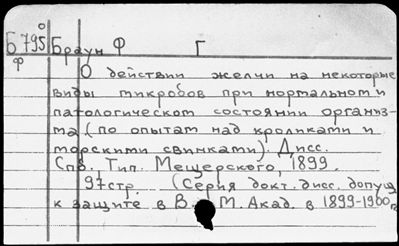 Б 795° Браун Ф Г
Ф О действии желчи на некоторые
виды микробов при нормальном и
патологическом состоянии организ-
ма (по опытам над кроликами и
морскими свинками). Дисс.
Спб, Тип. Мещерского, 1899.
97стр. (Серия докт. дисс. допущ.
к защите в В. М. Акад. в 1899-1900 г.